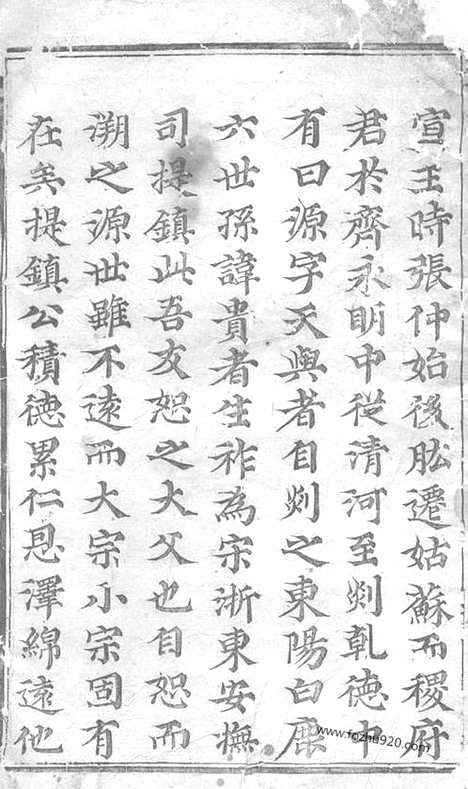 宣王時張仲始後肱遷姑蘇而稷府
君於齊永明中從清河至剡乾德中
有曰源字天與者自剡之東陽白鹿
六世孫諱貴者生祚為宋浙東安撫
司提鎮此吾友恕之大父也自恕而
溯之源世雖不遠而大宗小宗固有
在矣提鎮公積德累仁恩澤綿遠他
www.fozhu920.com